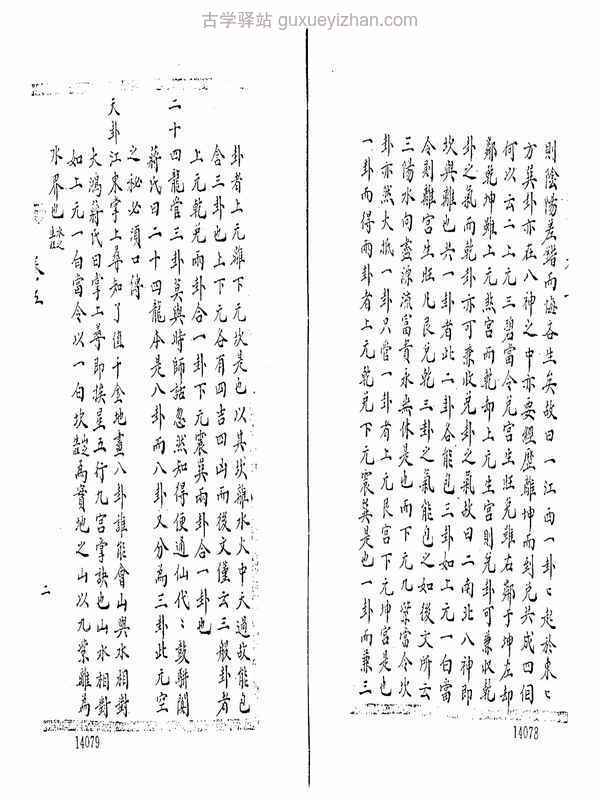 古学驿站 guxueyizhan.com
則陰陽差錯而悔吝生矣故曰一江西一卦〻起於東〻
方巽卦亦在八神之中亦要經歷離坤而到兌共成四個
何以云二上元三碧當令兌宮生旺兌雖右鄰于坤左却
鄰乾坤雖上元煞宮而乾却上元生宮則兌卦可兼收乾
卦之氣而乾卦亦可兼收兌卦之氣故曰二南北八神即
坎與離也共一卦者此二卦各能包三卦如上元一白當
令刻離宮生旺凡艮兌乾三卦之氣能包之如後文所云
三陽水向盡源流富貴永無休是也而下元九紫當令坎
卦亦然大抵一卦只管一卦者上元艮宮下元坤宮是也
一卦而得兩卦者上元乾兌下元震巽是也一卦而兼三
14078
卦者上元離下元坎是也以其坎離水火中天過故能包
含三卦也上下元各有四吉四凶而後文僅云三般卦者
上元乾兌兩卦合一卦下元震巽兩卦合一卦也
二十四龍管三卦莫與時師話忽然知得便通仙代〻鼓駢闐
蔣氏曰二十四龍本是八卦而八卦又分為三卦此元空
之秘必須口傳
天卦江東掌上尋知了值千金地畫八卦誰能會山與水相對
大鴻蔣氏曰掌上尋即挨星五行九宮掌訣也山水相對
如上元一白當令以一白坎為實地之山以九紫離為
水界也
卷五
二
14079